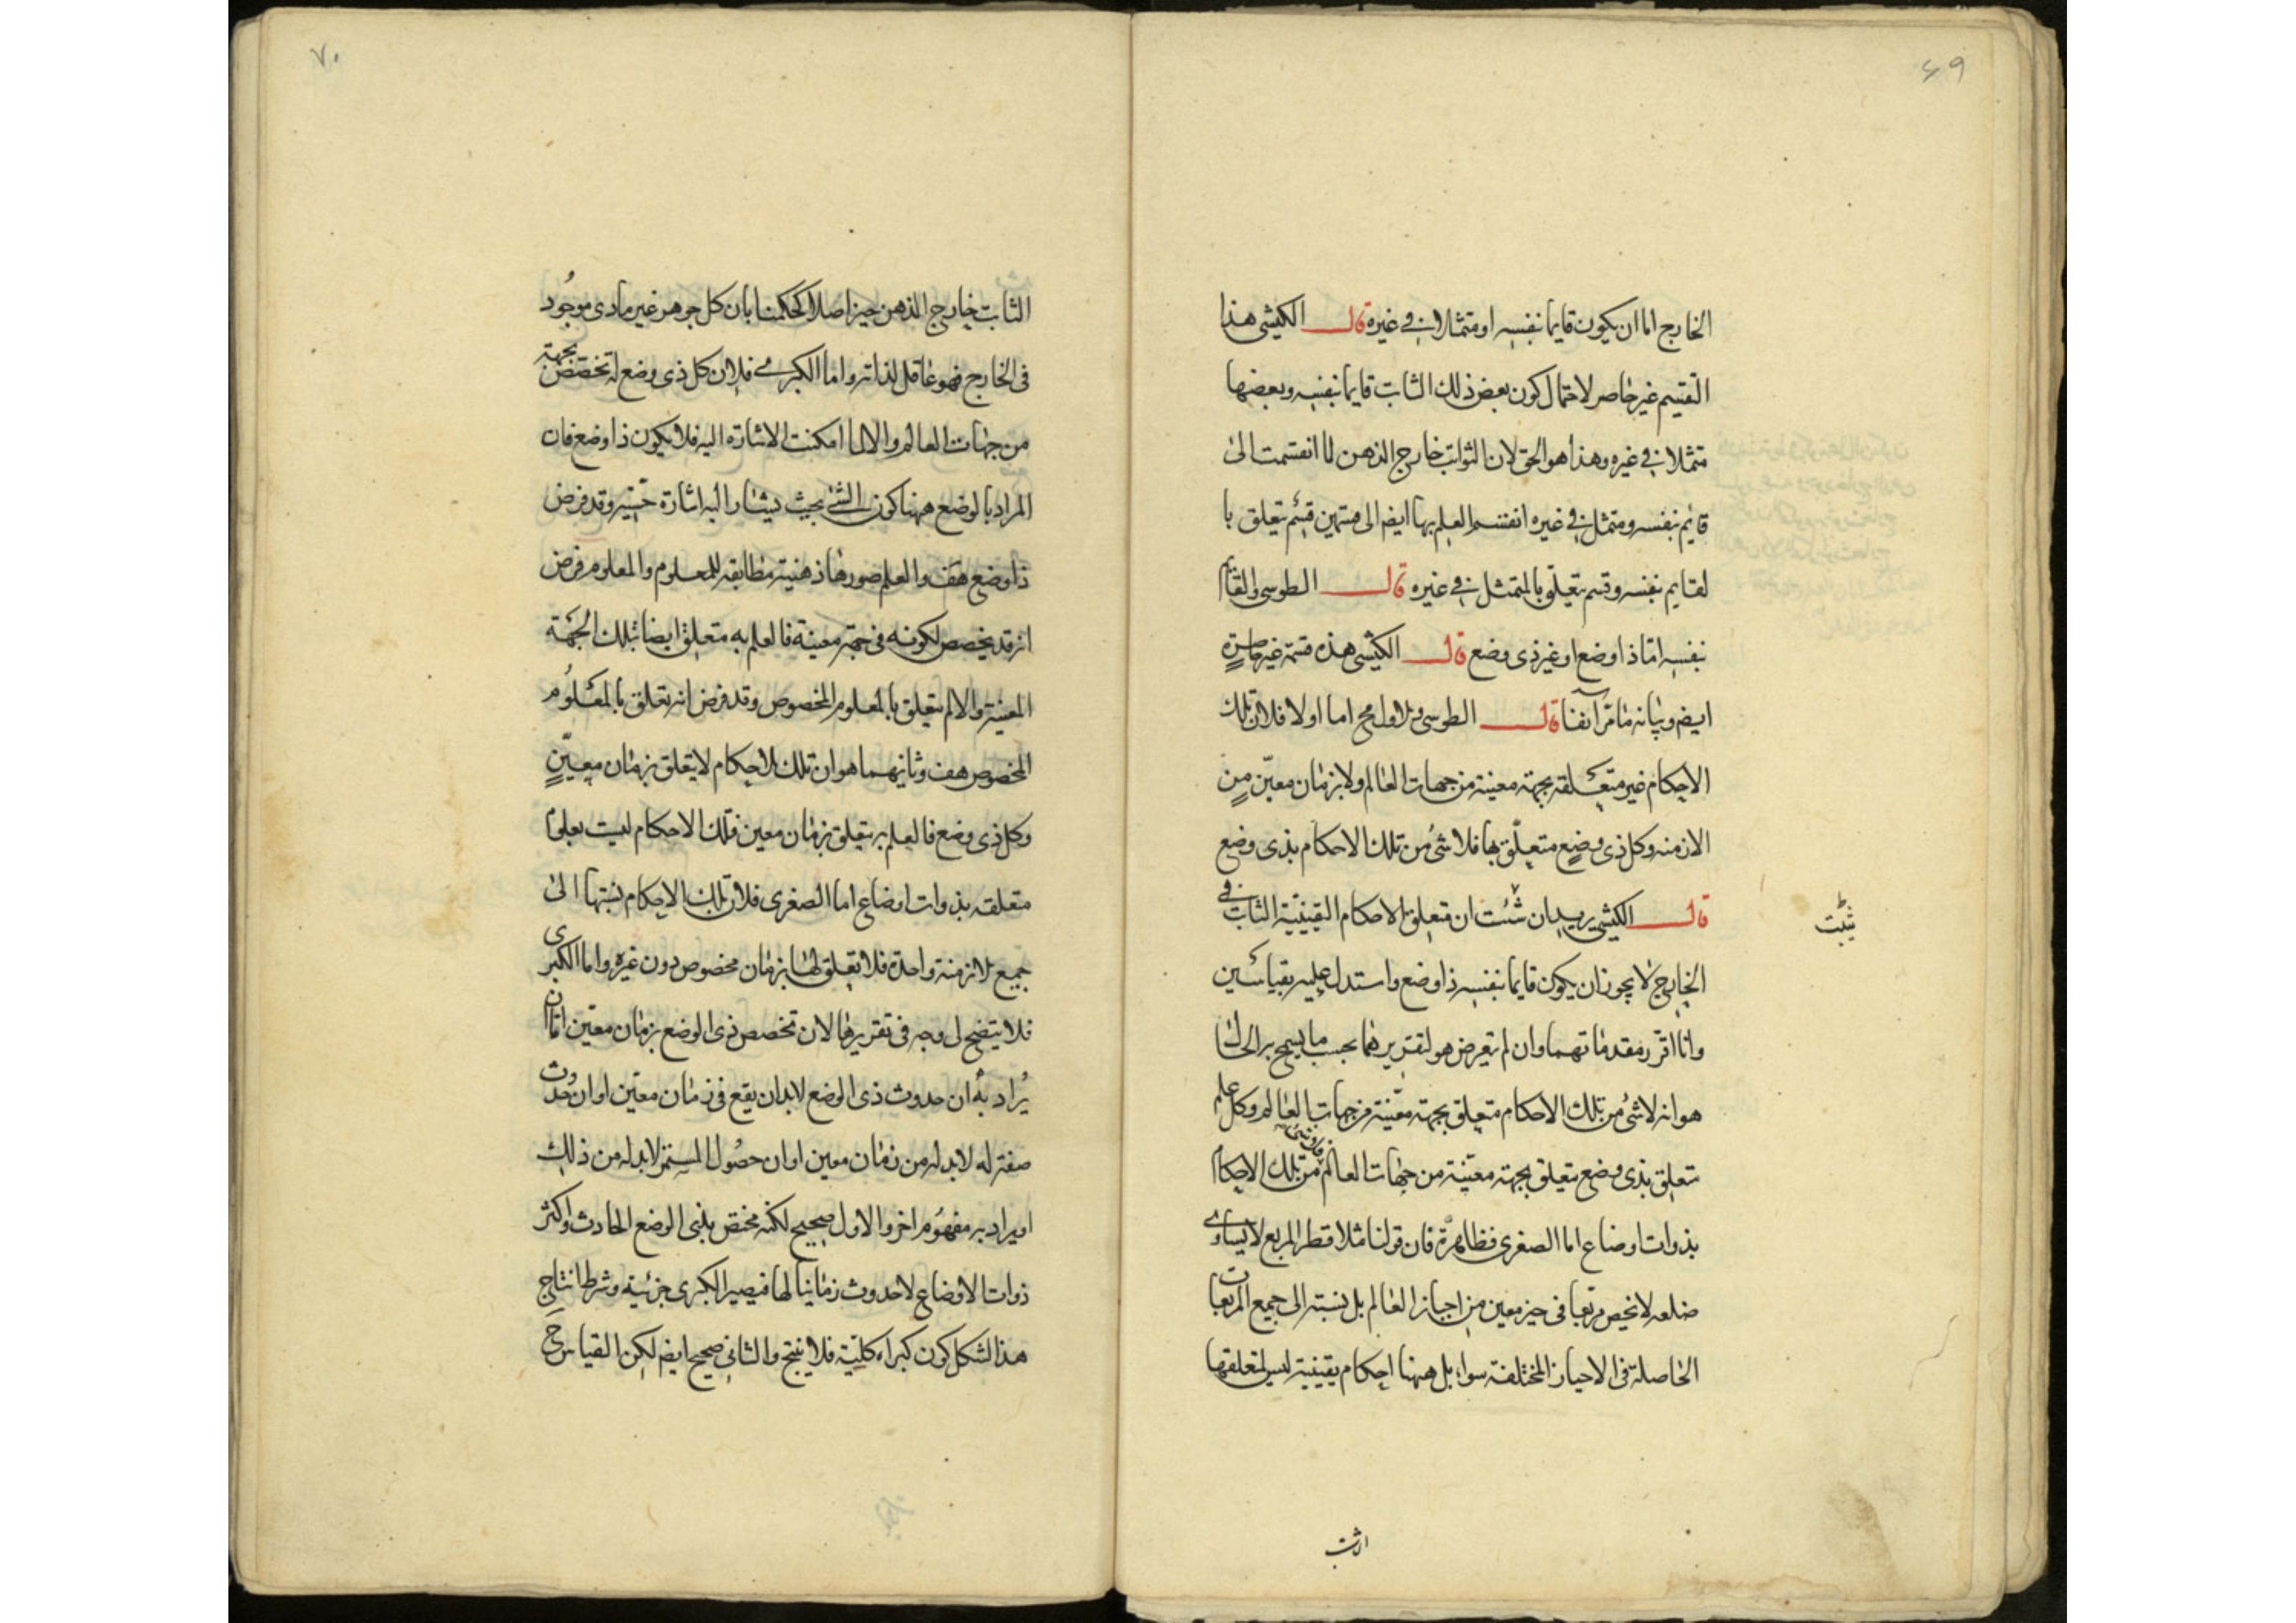 ٦٩
الخارج اما ان يكون قايما بنفسه او متمثلا في غيره قال الكيشى هذا
التقسيم غير حاصر لاحتمال كون بعض ذلك الثابت قايما بنفسه وبعضها
متمثلا في غيره وهذا هو الحق لان الثوابت خارج الذهن لما انقسمت الى
قائم بنفسه ومتمثل في غيره انقسم العلم بها ايضا الى قسمين قسم يتعلق با
لقايم بنفسه وقسم يتعلق بالمتمثل في غيره قال الطوسى والقائم
بنفسه اما ذا وضع او غير ذى وضع قال الكيشى هذه قسمة غير حاصرة
ايضم وبيانه ما مر آنفا قال الطوسى والاول مح اما اولا فلان تلك
الاحكام غير متعلقه بجهة معينة من جهات العالم ولا بزمان معين من
الازمنه وكل ذى وضع متعلق بها فلا شئ من تلك الاحكام بذى وضع
قال الكيشى يريد ان شئت ان متعلق الاحكام اليقينية الثابت في
الخارج لا يجوز ان يكون قايما بنفسه ذا وضع واستدل عليه بقياسين
وانا اقرر مقدماتهما وان لم يتعرض هو لتقريرهما بحسب ما يسمح به الحال
هو انه لا شئ من تلك الاحكام متعلق بجهة معينة من جهات العالم وكل علم
يتعلق بذى وضع يتعلق بجهة معينة من جهات العالم فلا شئ من تلك الاحكام
بذوات اوضاع اما الصغرى فظاهرة فان قولنا مثلا قطر المربع لا يساوى
ضلعه لا يخص مربعا فى حيز معين من احياز العالم بل نسبته الى جميع المربعات
الحاصلة فى الاحياز المختلفة سواء بل ههنا احكام يقينية ليس لمتعلقها
٧٠
الثابت خارج الذهن حيز اصلا كحكمنا بان كل جوهر غير مادى موجود
فى الخارج فهو عاقل لذاته واما الكبرى فلان كل ذى وضع له تخصص بجهة
من جهات العالم والا لما امكنت الاشارة اليه فلا يكون ذا وضع فان
المراد بالوضع ههنا كون الشئ بحيث يشار اليه اشارة حسية وقد فرض
ذا وضع هف والعلم صورة ذهنية مطابقه للمعلوم والمعلوم فرض
انه قد يخصص لكونه فى جهة معينة فالعلم به متعلق ايضا بتلك الجهة
المعينة والا لم يتعلق بالمعلوم المخصوص وقد فرض انه تعلق بالمعلوم
المخصوص هف وثانيهما هو ان تلك الاحكام لا يتعلق بزمان معين
وكل ذى وضع فالعلم به يتعلق بزمان معين فتلك الاحكام ليست بعلوم
متعلقه بذوات اوضاع اما الصغرى فلان تلك الاحكام نسبتها الى
جميع الازمنة واحدة فلا تعلق لها بزمان مخصوص دون غيره واما الكبرى
فلا يتضح لى وجه فى تقريرها لان تخصص ذى الوضع بزمان معين اما ان
يراد به ان حدوث ذى الوضع لابد ان يقع فى زمان معين او ان حدوث
صفة له لابد له من زمان معين او ان حصول المستمر لابد له من ذلك
او يراد به مفهوم اخر والاول صحيح لكنه مختص بذى الوضع الحادث واكثر
ذوات الاوضاع لا حدوث زمانيا لها فيصير الكبرى جزئية وشرط انتاج
هذا الشكل كون كبراه كلية فلا ينتج والثانى صحيح ايضم لكن القياس ح